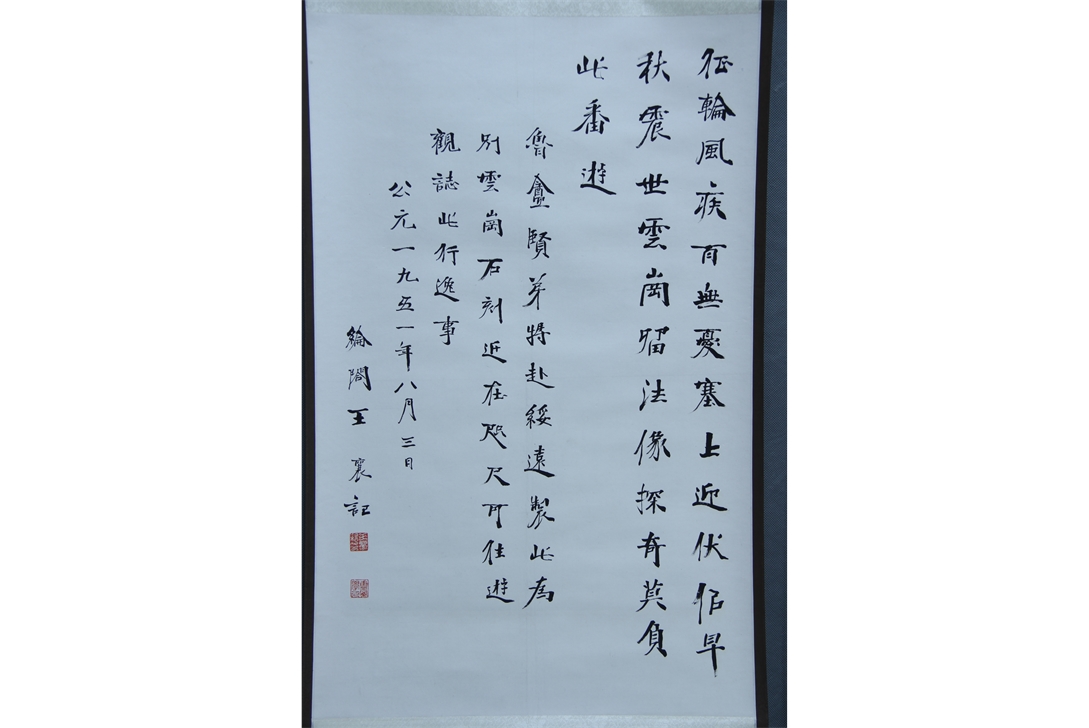 征輪風疾百無憂塞上近伏佀早
秋震世雲崗留法像探奇莫負
此番遊
魯盦賢弟特赴綏遠製此為
別雲崗石刻近在咫尺可往遊
觀誌此行逸事
公元一九五一年八月三日
綸閣王襄記